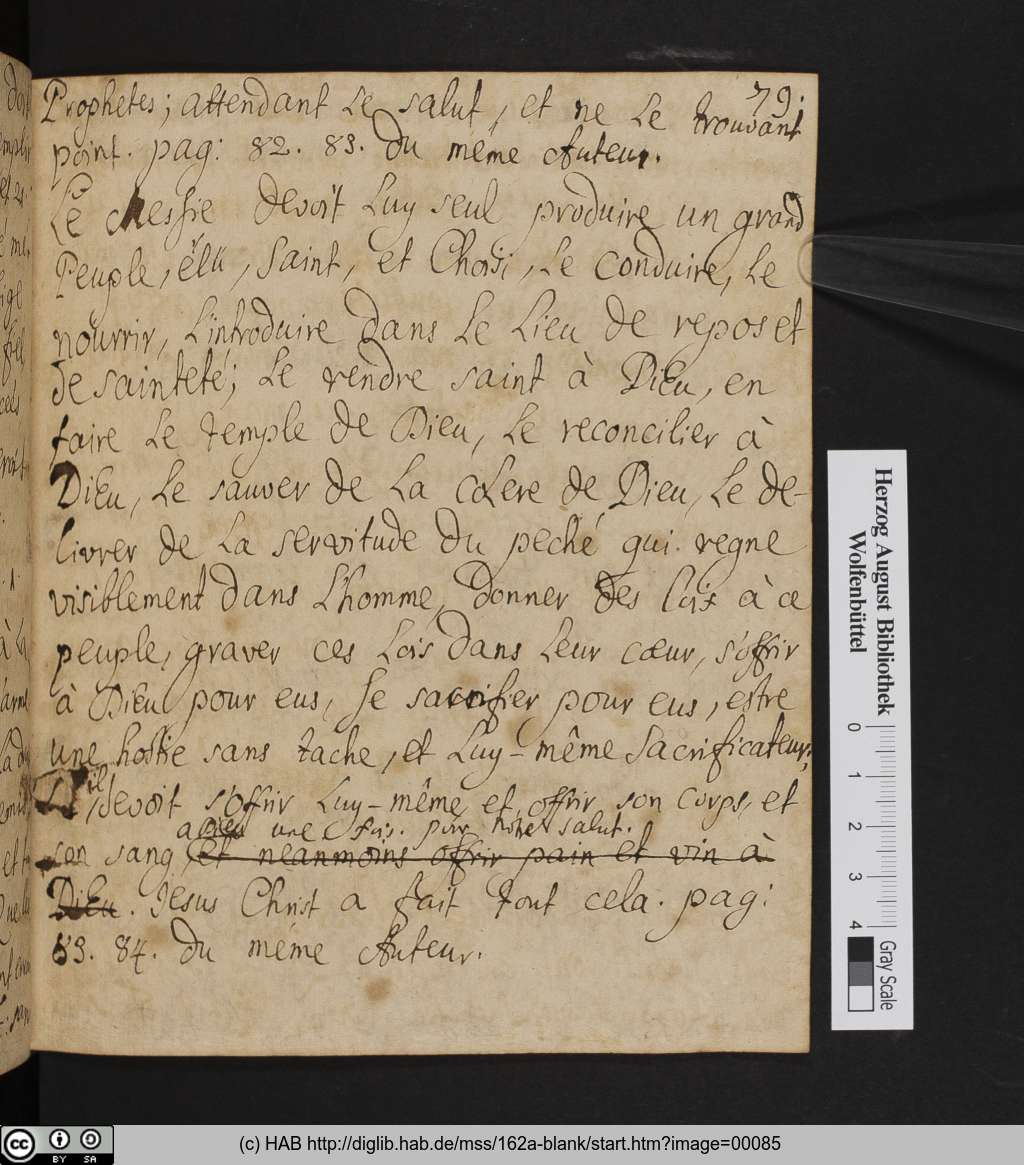 79.
Prophetes; attendant Le salut, et ne Le trouvant
point. pag: 82. 83. du même Auteur.
Le Messie devoit Luy seul produire un grand
Peuple, élu, Saint, et Choisi, Le conduire, Le
nourrir, L'introduire dans Le Lieu de repos et
de sainteté; Le rendre saint à Dieu, en
faire Le temple de Dieu, Le reconcilier à
Dieu, Le sauver de La colere de Dieu, Le de-
livrer de La servitude du peché qui regne
visiblement dans L'homme, donner des Loix à ce
peuple, graver ces Lois dans Leur cœur, s'offrir
à Dieu pour eus, se sacrifier pour eus, estre
une hostie sans tache, et Luy-même Sacrificateur;
il devoit s'offrir Luy-même, et offrir son corps, et
a Dieu une fois. pour nôtre salut.
son sang et neanmoins offrir pain et vin à
Dieu. Jesus Christ a fait tout cela. pag:
83. 84. du même Auteur.
Herzog August Bibliothek
Wolfenbüttel
0 1 2 3 4
Gray Scale
cc BY SA
(c) HAB http://diglib.hab.de/mss/162a-blank/start.htm?image=00085